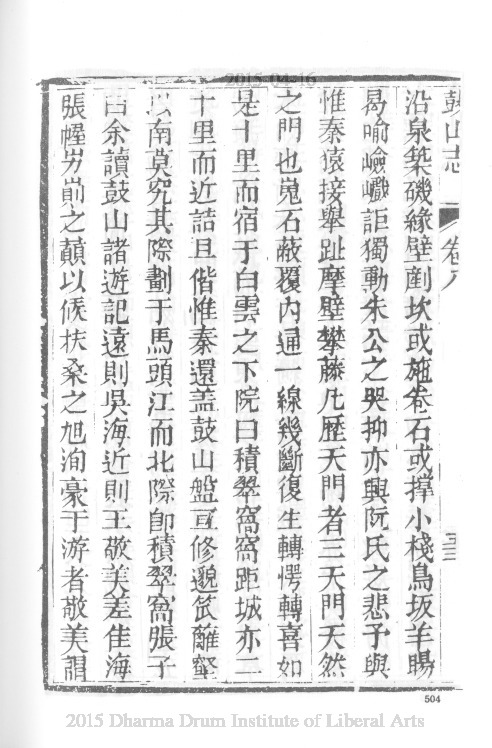 2015-04-16
鼓山志 卷八 三三
沿泉築磯緣壁剷坎或施卷石或撐小棧鳥坂羊腸
曷喻嶮巇詎獨動朱公之哭抑亦興阮氏之悲予與
惟秦猿接舉趾摩壁攀藤凡歷天門者三天門天然
之門也嵬石蔽覆內通一線幾斷復生轉愕轉喜如
是十里而宿于白雲之下院曰積翠窩窩距城亦二
十里而近詰旦偕惟秦還盖鼓山盤亘修邈笮離壑
以南莫究其際劃于馬頭江而北際卽積翠窩張子
曰余讀鼓山諸遊記遠則吳海近則王敬美差佳海
張幄屴崱之巔以候扶桑之旭洵豪于游者敬美謂
504
2015 Dharma Drum Institute of Liberal Arts